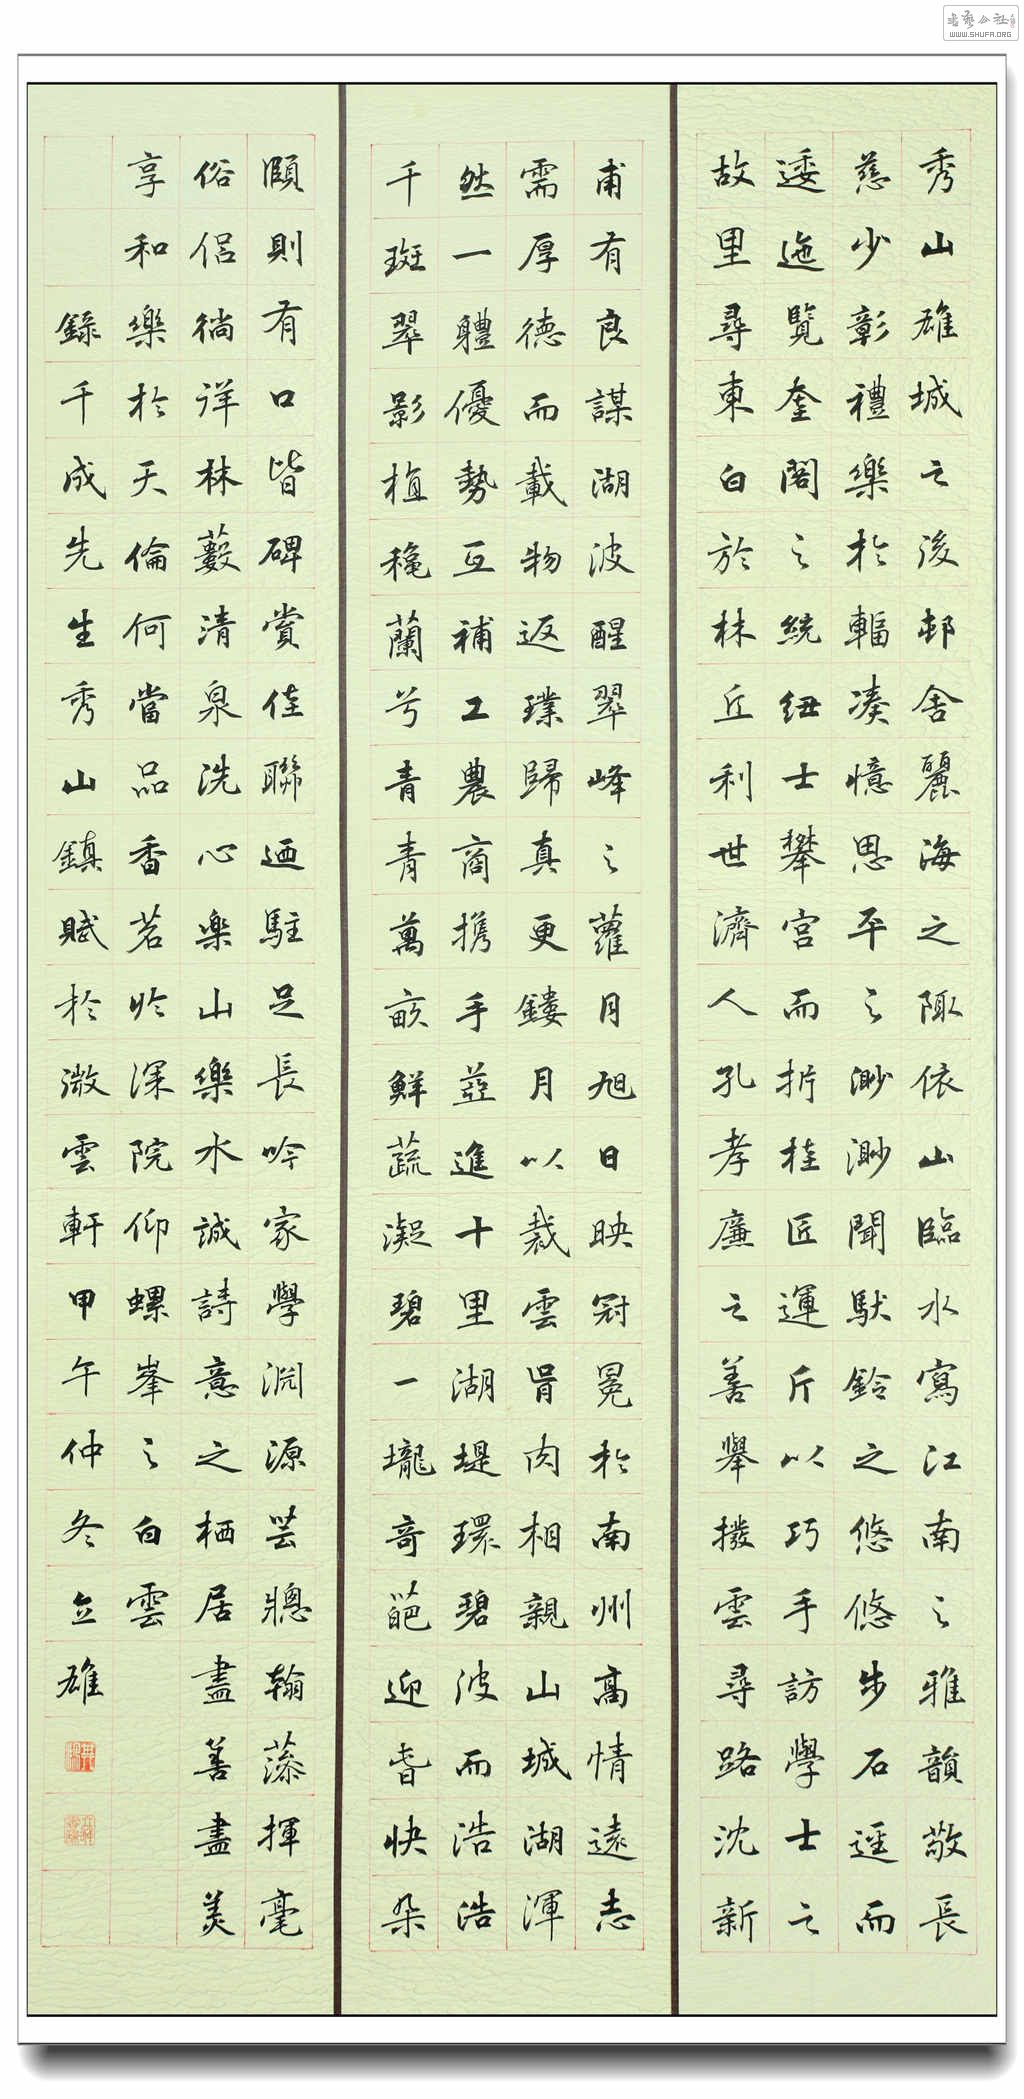 秀山雄城之後邨舍麗海之陬依山臨水寫江南之雅韻敬長
慈少彰禮樂於輻湊憶思平之渺渺聞馱鈴之悠悠步石逕而
逶迤覽奎閣之統紐士攀宮而折桂匠運斤以巧手訪學士之
故里尋東白於林丘利世濟人孔孝廉之善舉撥雲尋路沈新
甫有良謀湖波醒翠峰之蘿月旭日映冠冕於南州高情遠志
需厚德而載物返璞歸真更鏤月以裁雲骨肉相親山城湖渾
然一體優勢互補工農商携手並進十里湖堤環碧波而浩浩
千斑翠影植穐蘭兮青青萬畝鮮蔬凝碧一壠奇葩迎春快朵
頤則有口皆碑賞佳聯迺駐足長吟家學淵源芸牕翰藻揮毫
俗侶徜徉林藪清泉洗心樂山樂水誠詩意之栖居盡善盡美
享和樂於天倫何當品香茗於深院仰螺峯之白雲
錄千成先生秀山鎮賦於微雲軒甲午仲冬立雄
WWW.SHUFA.ORG